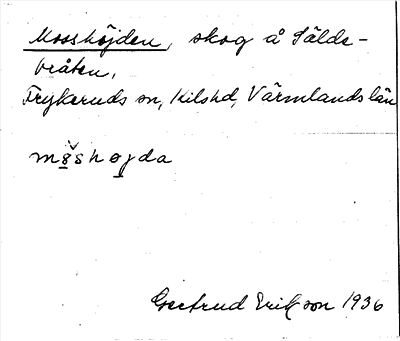 Mosshöjden, skog å Sälde-
bråten,
Frykeruds sn, Kils hd, Värmlands län
mo̤šhøjda
Gertrud Erikson 1936